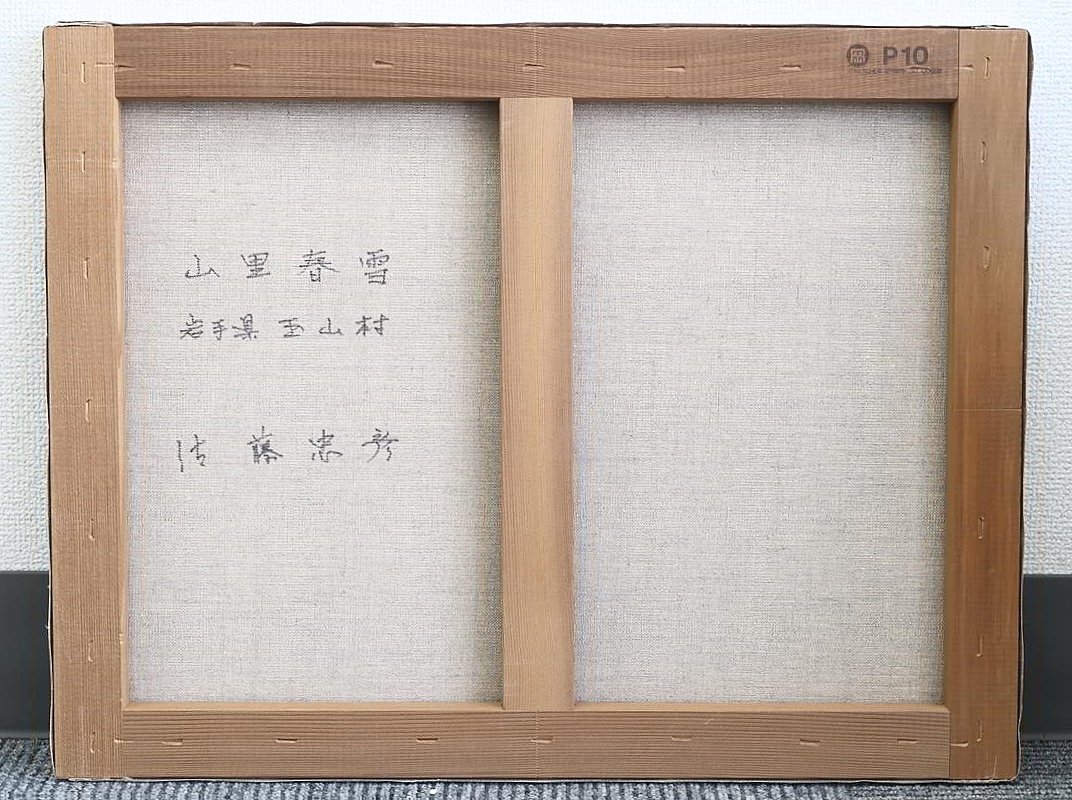 P10
山里春雪
岩手県 玉山村
佐藤忠彦